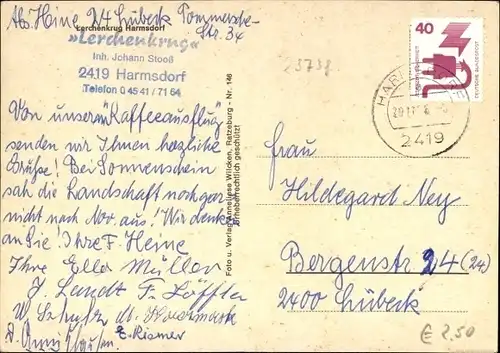 Abs. Heine 24 Lübeck Pommersche-
Str. 34
Lerchenkrug Harmsdorf
»Lerchenkrug«
Inh. Johann Stooß
2419 Harmsdorf
Telefon 0 45 41 / 71 64
Von unserm Kaffeeausflug
senden wir Ihnen herzliche
Grüße! Bei Sonnenschein
sah die Landschaft noch gar
nicht nach Nov. aus! Wir denken
an Sie! Ihre F. Heine
Ihre Ella Müller
J. Landt F. Löffler
W.
E. Kismer
Foto u. Verlag Anneliese Wilcken, Ratzeburg - Nr. 146
Urheberrechtlich geschützt!
23738
40
DEUTSCHE BUNDESPOST
2419
Frau
Hildegard Ney
Bergenstr 24 (24)
2400 Lübeck
€ 2,50